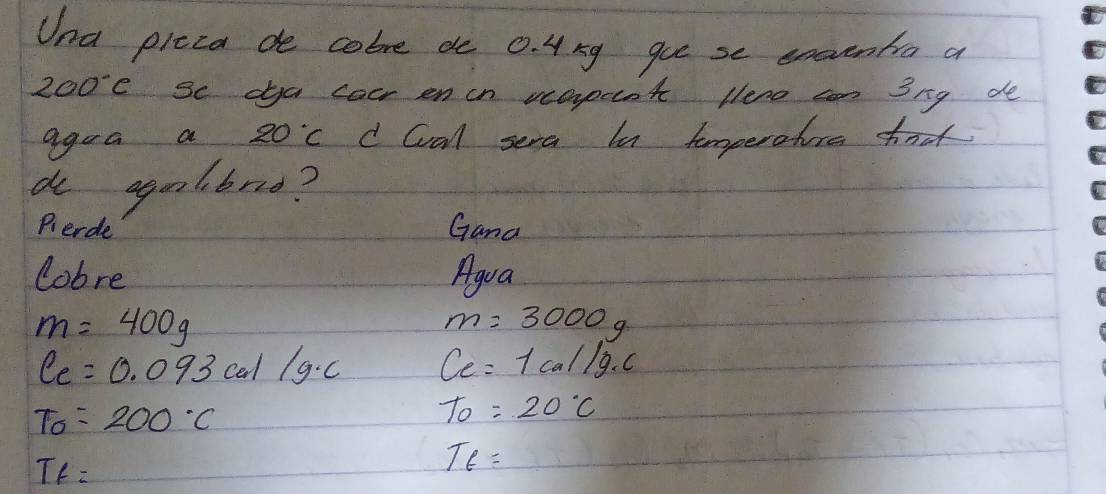 Una pieza de cobre de 0.4 kg que se encuentra a
200°C se deja caer en un recipiente lleno con 3kg de
agua a 20°C ¿ Cual sera la temperatura
de equilibrio?
Pierde Gana
Cobre Agua
m= 400g m= 3000g
Ce= 0.093 cal /g.c Ce= 1 cal/g.c
To= 200°C To= 20°C
Tf= Tf=